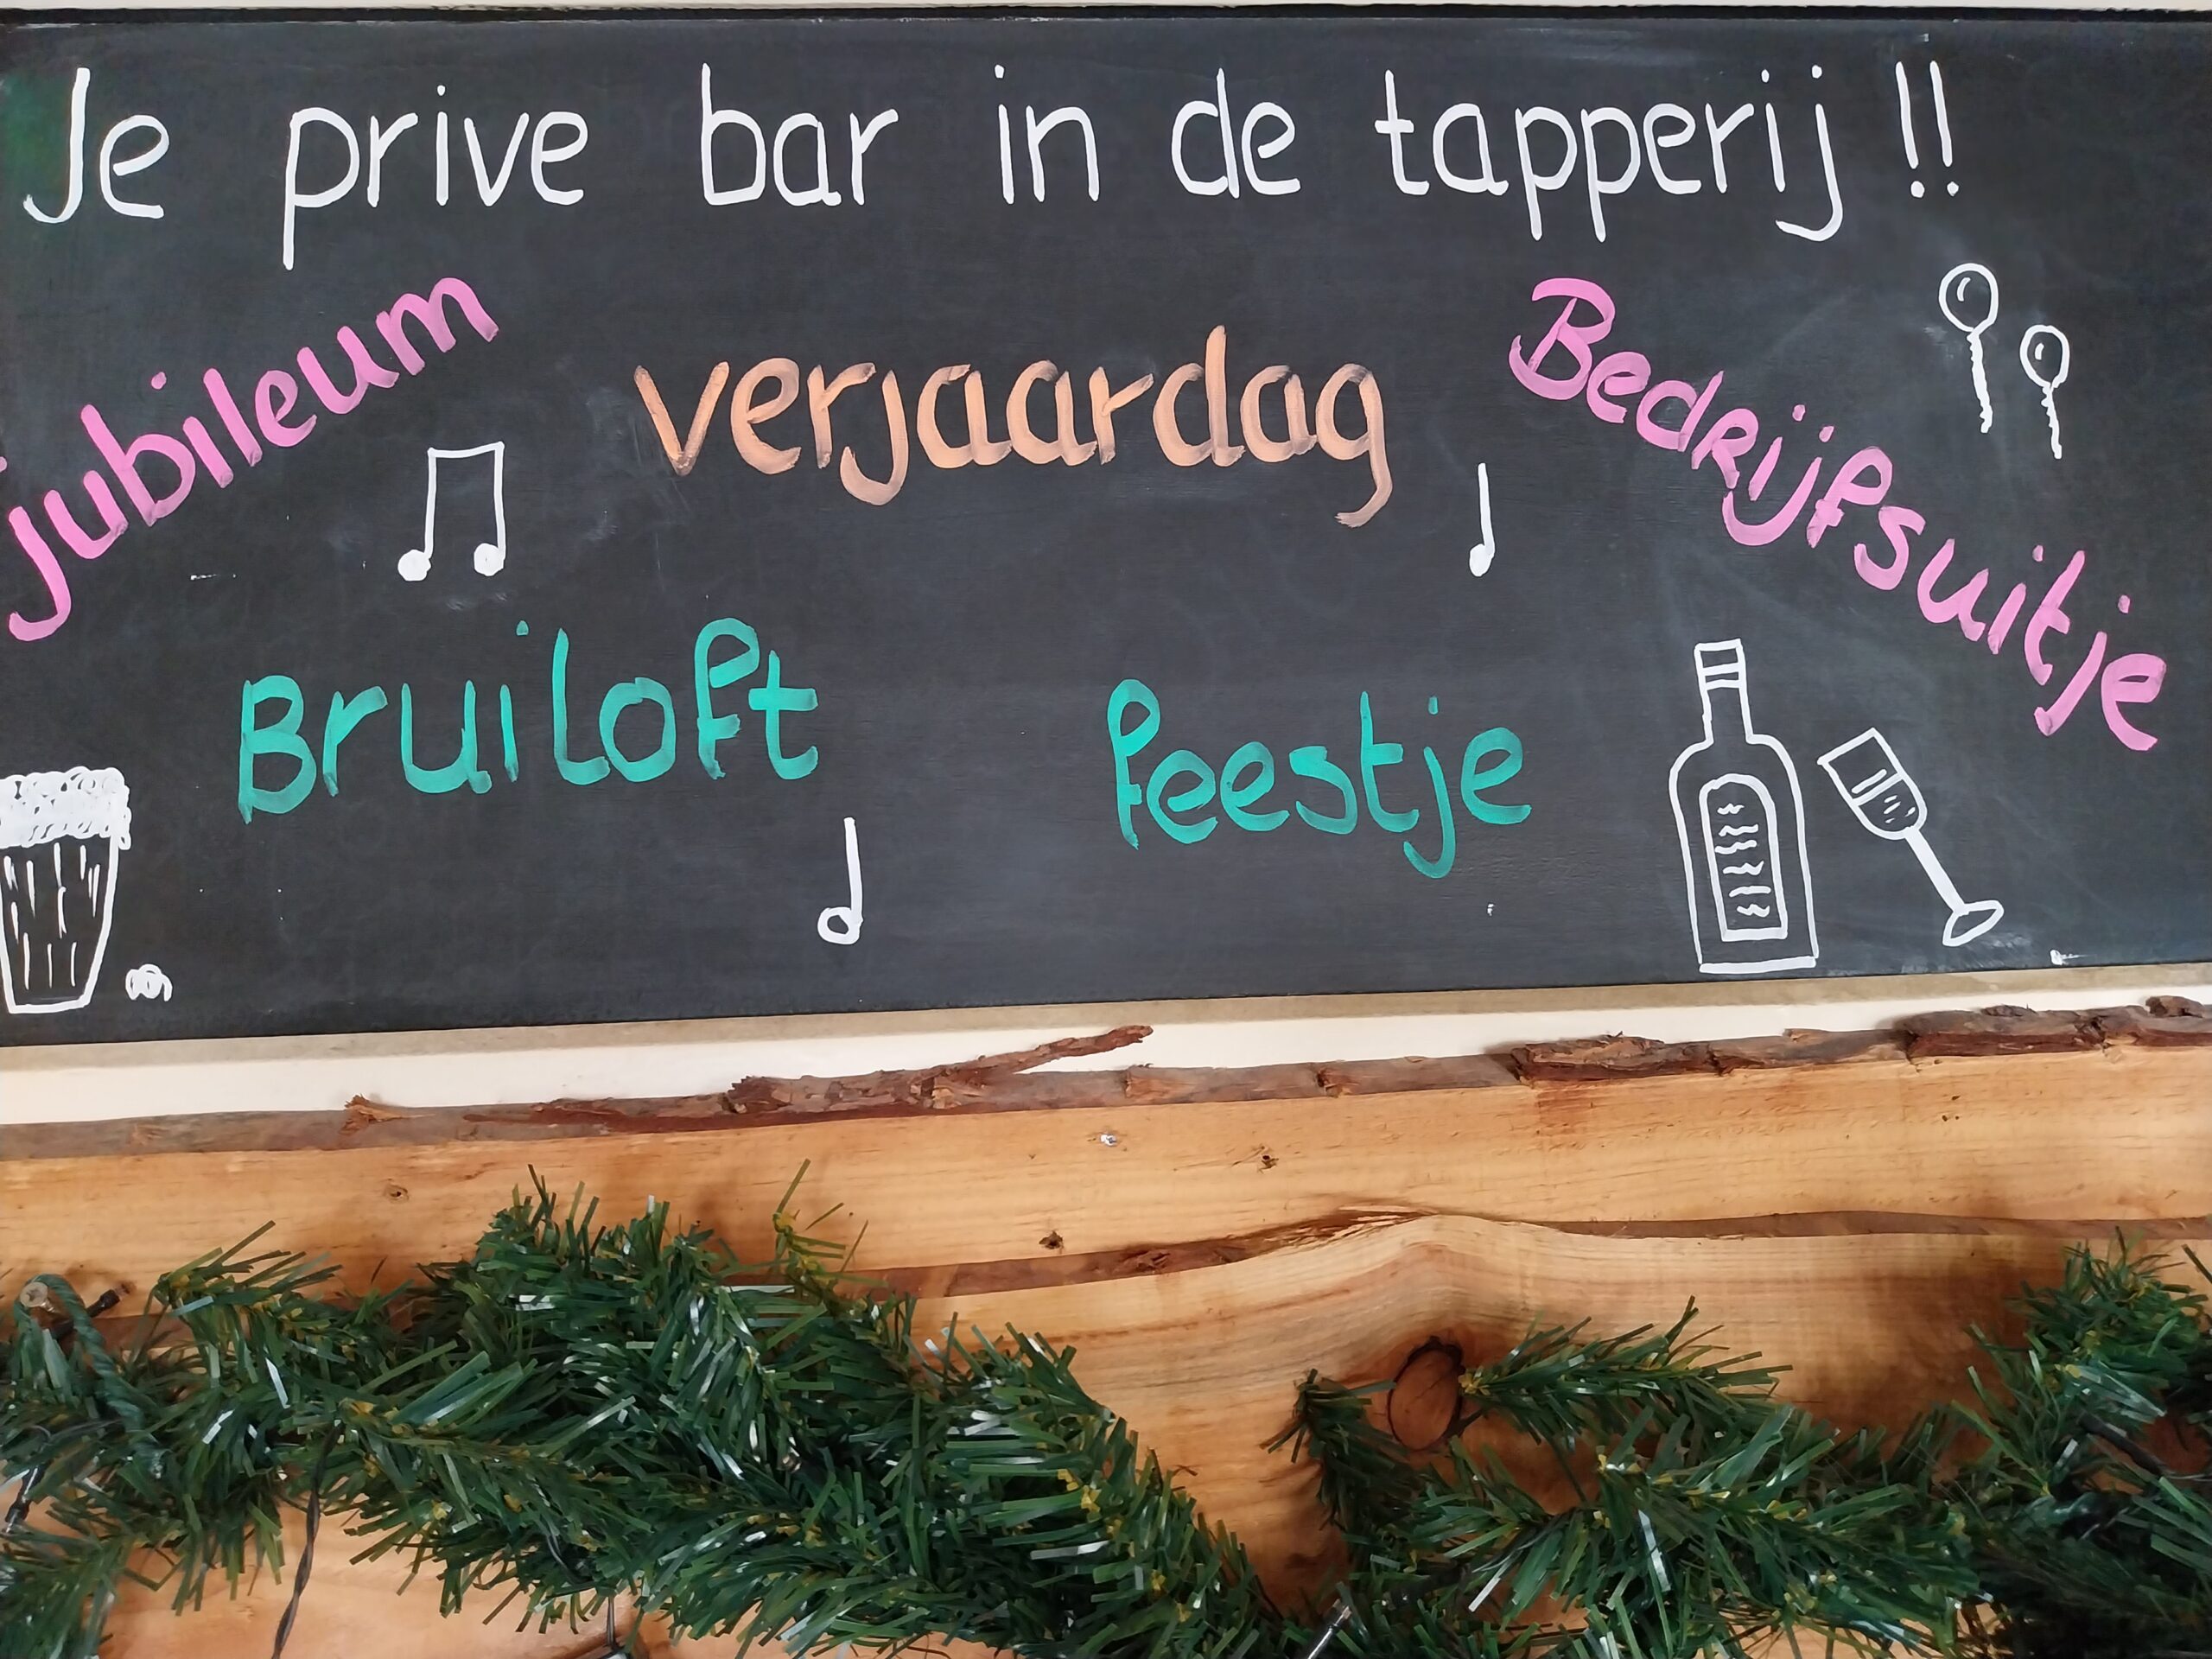 Je prive bar in de tapperij !!
jubileum
verjaardag
Bedrijfsuitje
Bruiloft
feestje